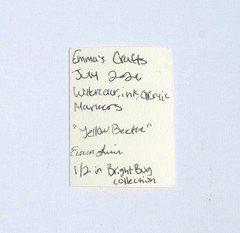 Emma's Crafts
July 2020
Watercolour, ink, acrylic
Markers
"Yellow Beetle"
Emma
1/2 in Bright Bug
collection